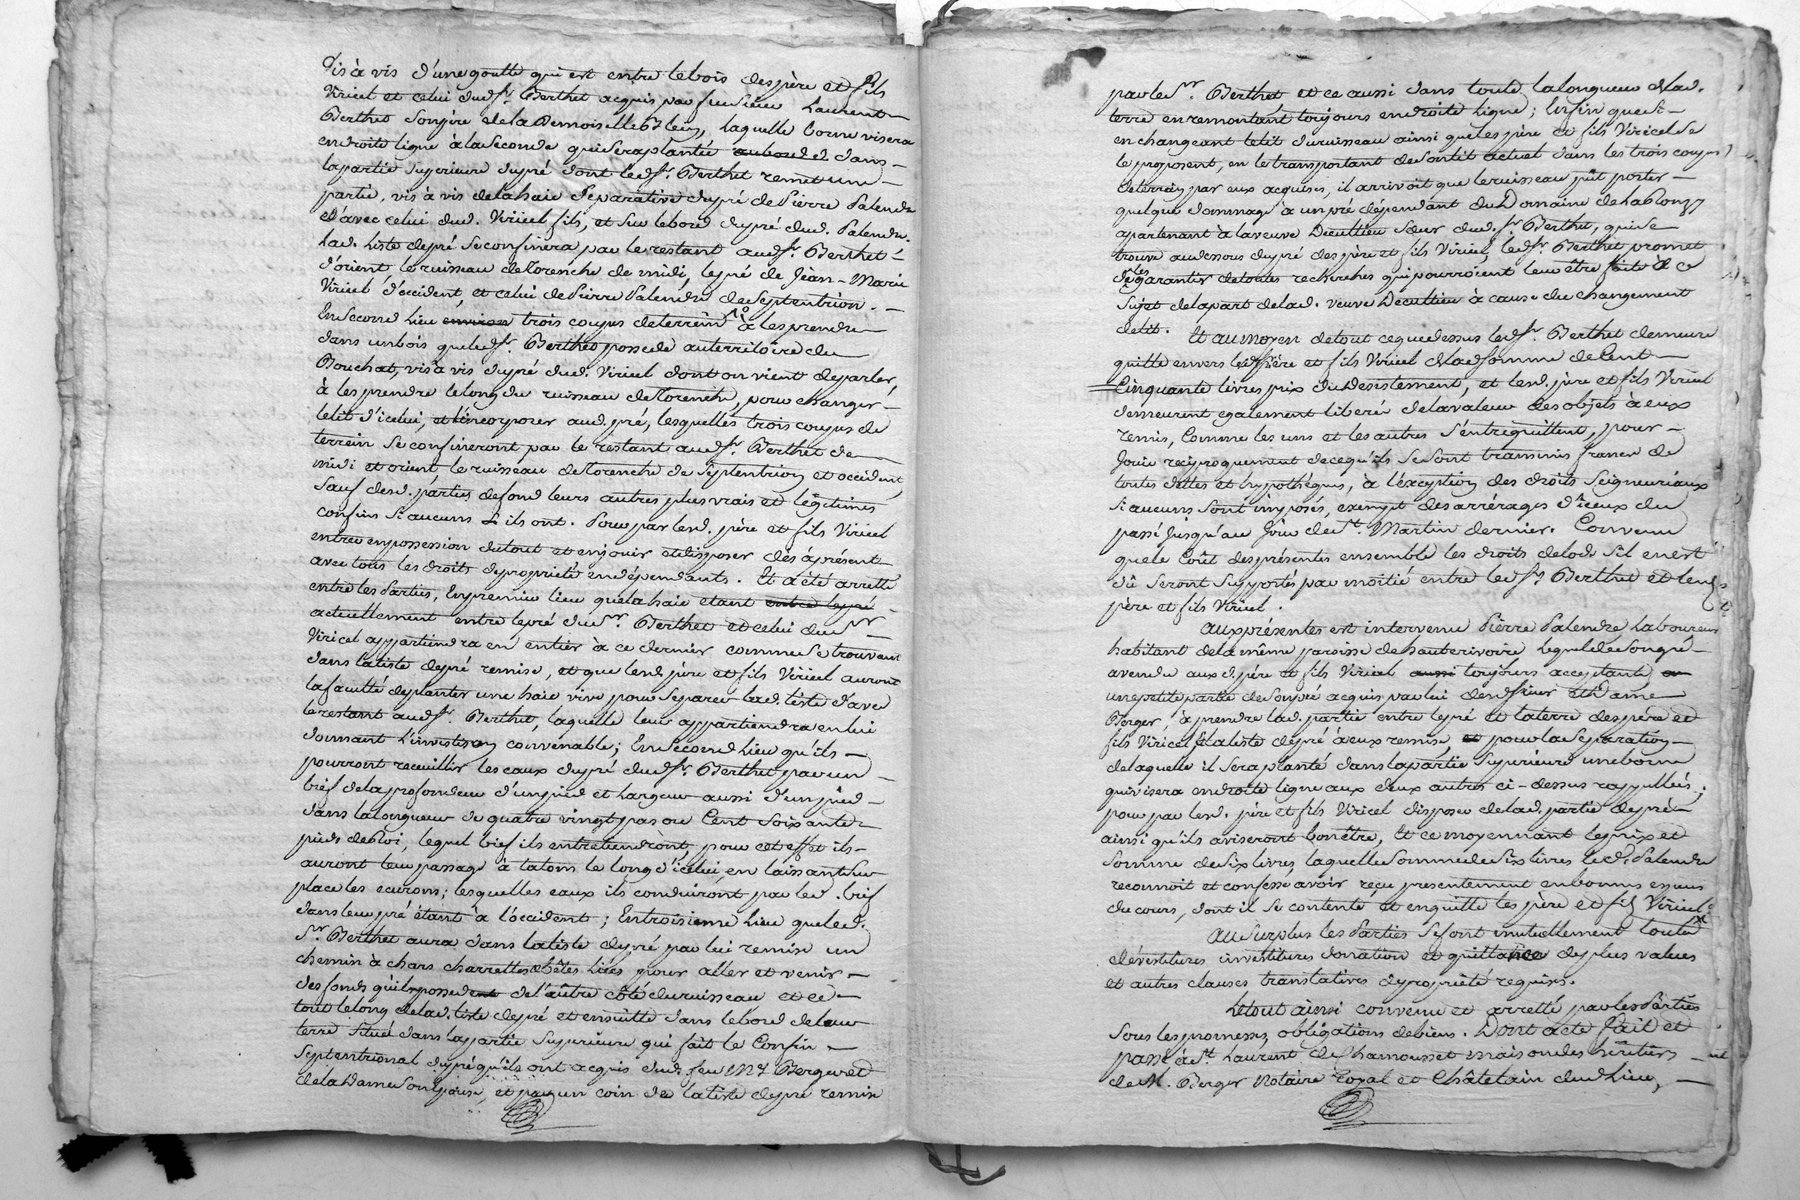 vis à vis d'une goutte qui est entre le bois des père et fils
Viricel et celui dud. Sr. Berthet acquis par feu Sieur Laurent
Berthet son père de la Demoiselle Bleu, laquelle borne visera
en droite ligne à la seconde qui sera plantée au bout d dans
la partie superieure du pré dont led. Sr. Berthet remet une
partie, vis à vis de la haie Séparative du pré de Pierre Palendre
d'avec celui dud. Viricel fils, et sur le bord du pré dud. Palendre.
lad. liste de pré se confinera par le restant aud. Sr. Berthet
d'orient, le ruisseau de Torenche de midi, le pré de Jean-Marie
Viricel d'occident, et celui de Pierre Palendre de septentrion.
En second lieu environ trois coupes de terrein à les prendre
dans un bois que led. Sr. Berthet possede au territoire du
Bouchat, vis à vis du pré dud. Viricel dont on vient de parler,
à les prendre le long du ruisseau de Torenche, pour changer
le lit d'icelui, et l'incorporer aud. pré, lesquelles trois coupes de
terrein se confineront par le restant aud. Sr. Berthet de
midi et orient, le ruisseau de Torenche de septentrion et occident,
sauf desd. parties de fond leurs autres plus vrais et légitimes
confins si aucuns ils ont. Pour par lesd. père et fils Viricel
entrer en possession du tout et en jouir et disposer dès àprésent
avec tous les droits de propriété en dépendants. Et a été arretté
entre les Parties, En premier lieu que la haie étant entre le pré
actuellement entre le pré du Sr. Berthet et celui du Sr.
Viricel appartiendra en entier à ce dernier comme se trouvant
dans la liste de pré remise, et que lesd. père et fils Viricel auront
la faculté de planter une haie vive pour séparer lad. liste d'avec
le restant aud. Sr. Berthet, laquelle leur appartiendra en lui
donnant l'investison convenable; En second lieu qu'ils
pourront receuillir les eaux du pré dud. Sr. Berthet par un
bief de la profondeur d'un pied et largeur aussi d'un pied
dans la longueur de quatre vingt pas ou Cent soixante
pieds de Roi, lequel bief ils entretiendront, pour cet effet ils
auront leur passage à talons le long d'icelui, en laissant sur
place les ecurons; lesquelles eaux ils conduiront par led. bief
dans leur pré étant à l'occident; En troisieme lieu que led.
Sr. Berthet aura dans la liste de pré par lui remise un
chemin à chars charrettes et bêtes liées pour aller et venir
des fonds qu'il possede de l'autre côté du ruisseau et ce
tout le long de lad. liste de pré et ensuitte dans le bord de leur
terre située dans la partie superieure qui fait le confin
septentrional du pré qu'ils ont acquis dud. feu Me Berger et
de la Dame son épouse, et par un coin de la liste de pré remise
par led. Sr. Berthet et ce aussi dans toute la longueur de lad.
terre en remontant toujours en droite ligne; Enfin que si
en changeant le lit du ruisseau ainsi que les père et fils Viricel se
le proposent, en le transportant de son lit actuel dans les trois coupes
de terrein par eux acquises, il arrivoit que le ruisseau put porter
quelque dommage à un pré dépendant du Domaine de
appartenant à la veuve Decultieu Sœur dud. Sr. Berthet, qui se
trouve au dessous du pré des père et fils Viricel, led. Sr. Berthet promet
de les garantir de toutes recherches qui pourroient leur être faite à ce
sujet de la part de lad. veuve Decultieu à cause du changement
de lit. Et au moyen de tout ce que dessus led. Sr. Berthet demeure
quitte envers lesd. père et fils Viricel de lad. somme de Cent
Cinquante livres prix du desistement, et lesd. père et fils Viricel
demeurent egalement liberés de la valeur des objets à eux
remis, comme les uns et les autres s'entrequittent, pour
jouir reciproquement de ce qu'ils se sont transmis franc de
toutes dettes et hypothèques, à l'exception des droits seigneuriaux
si aucuns sont imposés, exempt des arrérages d'iceux du
passé jusqu'au jour de St. Martin dernier. Convenu
que le coût des présentes ensemble les droits de lods s'il en est
dû seront supportés par moitié entre led. Sr. Berthet et lesd.
père et fils Viricel.
Aux présentes est intervenu Pierre Palendre laboureur
habitant de la même paroisse de hauterivoire lequel de son gré
a vendu auxd. père et fils Viricel aussi toujours acceptants
une petite partie de son pré acquis par lui desd. sieur et Dame
Berger, à prendre lad. partie entre le pré et la terre des père et
fils Viricel et la liste de pré à eux remise, et pour la séparation
de laquelle il sera planté dans la partie superieure une borne
qui visera en droite ligne aux deux autres ci-dessus rappellées;
pour par lesd. père et fils Viricel disposer de lad. partie de pré
ainsi qu'ils aviseront bon être, Et ce moyennant le prix et
somme de six livres, laquelle somme de six livres led. Palendre
reconnoit et confesse avoir reçu presentement en bonnes especes
du cours, dont il se contente et en quitte les père et fils Viricel.
Au surplus les Parties se font mutuellement toutes
dévestitures investitures donation et quittance de plus values
et autres clauses translatives de propriété requises.
Le tout ainsi convenu et arretté par les Parties
sous les promesses, obligations de biens. Dont acte fait et
passé à St. Laurent de Chamousset maison des héritiers
de M. Berger Notaire Royal et Châtelain dud. lieu,